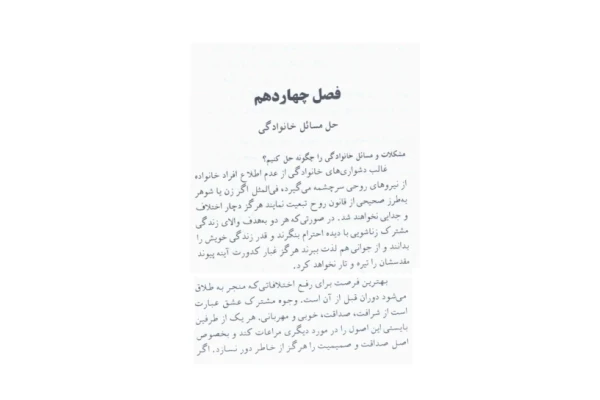 فصل چهاردهم
حل مسائل خانوادگی
مشکلات و مسائل خانوادگی را چگونه حل کنیم؟
غالب دشواری‌های خانوادگی از عدم اطلاع افراد خانواده
از نیروهای روحی سرچشمه می‌گیرد، فی‌المثل اگر زن یا شوهر
به‌طرز صحیحی از قانون روح تبعیت نمایند هرگز دچار اختلاف
و جدایی نخواهند شد. در صورتی‌که هر دو به‌هدف والای زندگی
مشترک زناشویی با دیده احترام بنگرند و قدر زندگی خویش را
بدانند و از جوانی هم لذت ببرند هرگز غبار کدورت آینه پیوند
مقدسشان را تیره و تار نخواهد کرد.
بهترین فرصت برای رفع اختلافاتی‌که منجر به طلاق
می‌شود دوران قبل از آن است. وجوه مشترک عشق عبارت
است از شرافت، صداقت، خوبی و مهربانی. هر یک از طرفین
بایستی این اصول را در مورد دیگری مراعات کند و بخصوص
اصل صداقت و صمیمیت را هرگز از خاطر دور نسازد. اگر